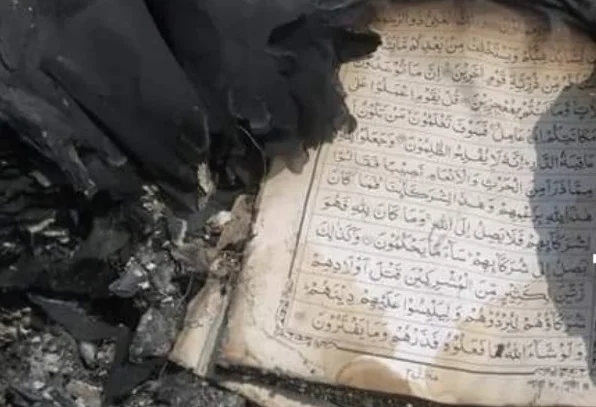 ذُو الرَّحْمَةِ
وَيَسْتَخْلِفْ مِنْ بَعْدِكُمْ مَا يَشَاءُ
مِنْ ذُرِّيَّةِ قَوْمٍ آخَرِينَ إِنَّ مَا تُوعَدُونَ
وَمَا أَنْتُمْ بِمُعْجِزِينَ قُلْ يَقَوْمِ اعْمَلُوا عَلَى
مَكَانَتِكُمْ إِنِّي عَامِلٌ فَسَوْفَ تَعْلَمُونَ مَنْ تَكُونُ
عَاقِبَةُ الدَّارِ إِنَّهُ لَا يُفْلِحُ الظَّلِمُونَ وَجَعَلُوا لِلَّهِ
مِمَّا ذَرَأَ مِنَ الْحَرْثِ وَالْأَنْعَامِ نَصِيبًا فَقَالُوا
هَذَا لِلَّهِ بِزَعْمِهِمْ وَهَذَا لِشُرَكَائِنَا فَمَا كَانَ
لِشُرَكَائِهِمْ فَلَا يَصِلُ إِلَى اللَّهِ وَمَا كَانَ لِلَّهِ فَهُوَ
يَصِلُ إِلَى شُرَكَائِهِمْ سَاءَ مَا يَحْكُمُونَ وَكَذَلِكَ
زَيَّنَ لِكَثِيرٍ مِنَ الْمُشْرِكِينَ قَتْلَ أَوْلَادِهِمْ
شُرَكَاؤُهُمْ لِيُرْدُوهُمْ وَلِيَلْبِسُوا عَلَيْهِمْ دِينَهُمْ
وَلَوْ شَاءَ اللَّهُ مَا فَعَلُوهُ فَذَرْهُمْ وَمَا يَفْتَرُونَ